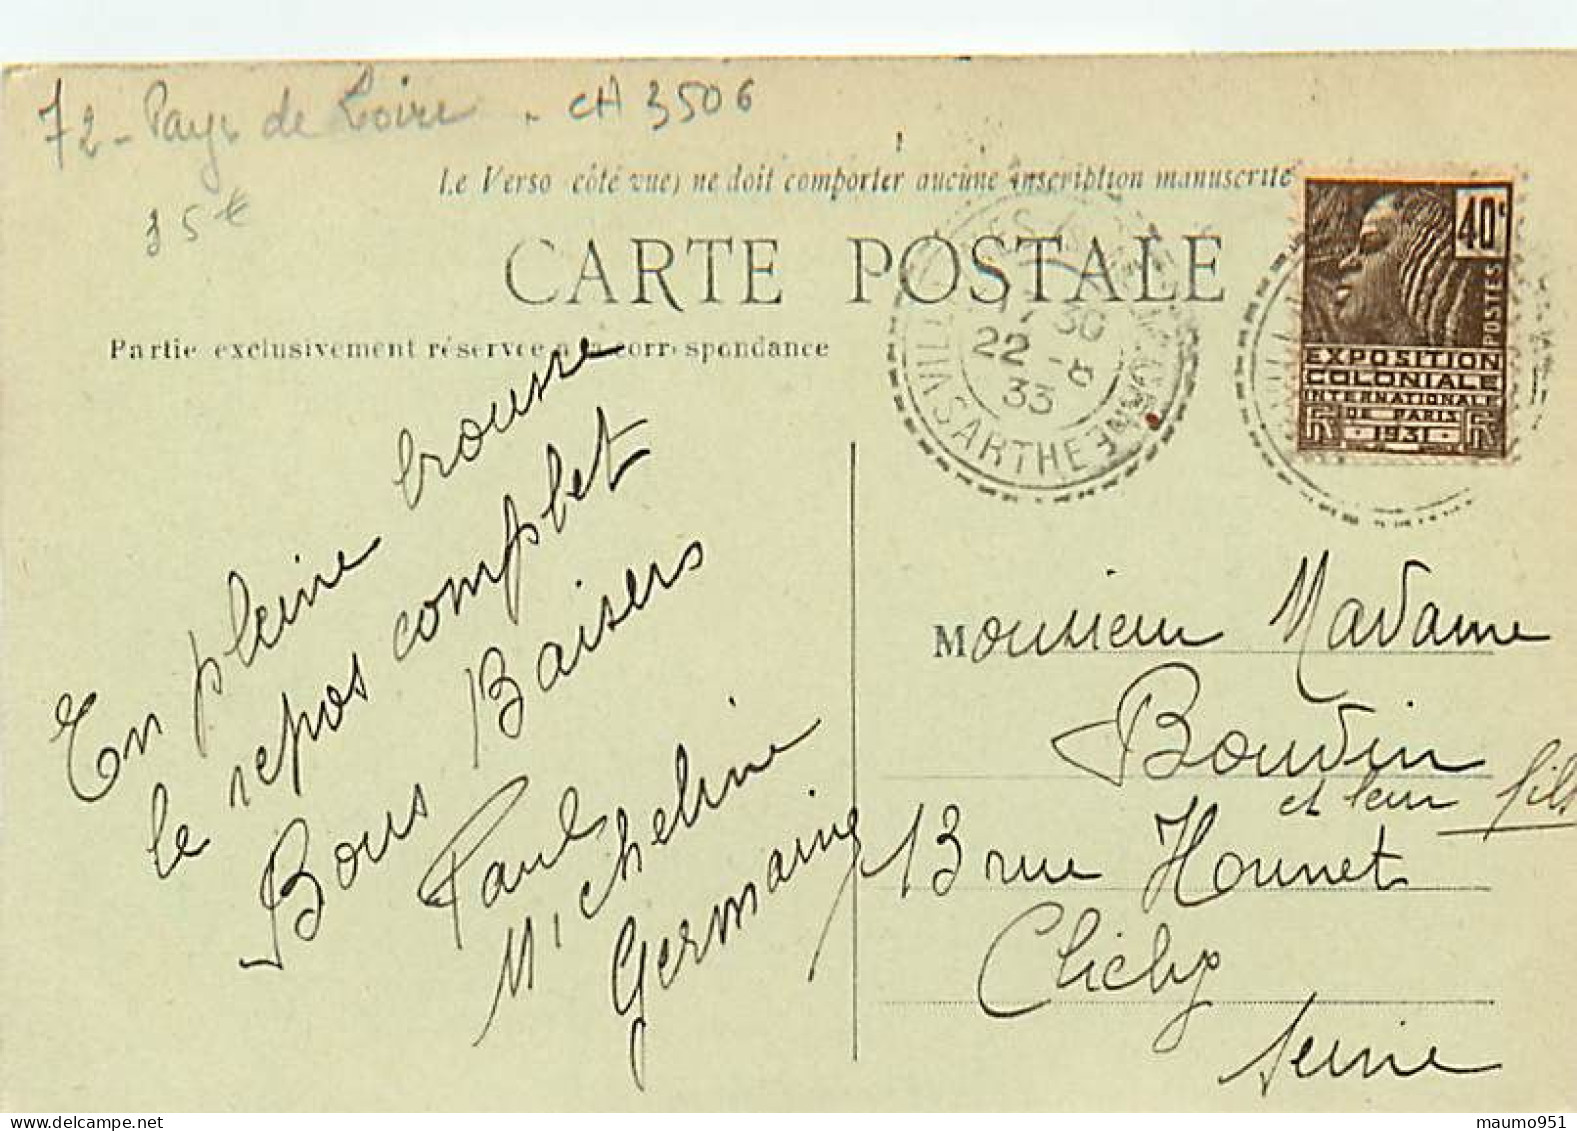 72 - Pays de Loire - CH 3506
35€
Le Verso (côté vue) ne doit comporter aucune inscription manuscrite
CARTE POSTALE
Partie exclusivement réservée à la correspondance
40c
POSTES
EXPOSITION
COLONIALE
INTERNATIONALE
DE PARIS
1931
RF RF
30
22 - 8
33
SARTHE
En pleine brousse
le repos complet
Bons Baisers
Paul
Micheline
Germaine
Monsieur Madame
Boudin
et leur fils
13 rue Hounet
Clichy
Seine
maumo951